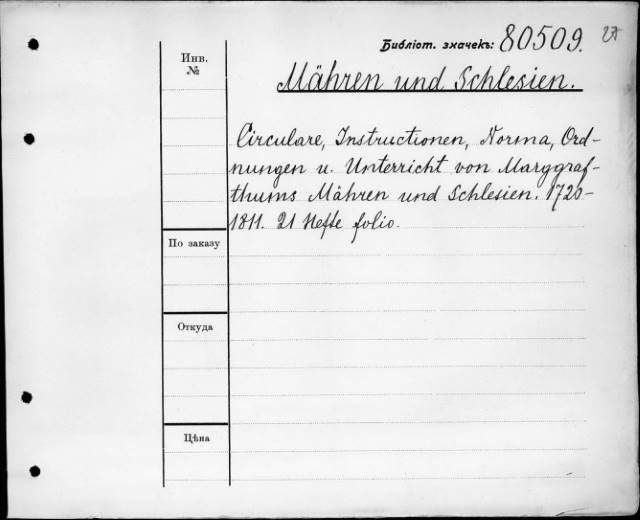 Библіот. значекъ: 80509. 27
Инв. №
Mähren und Schlesien.
Circulare, Instructionen, Norma, Ord-
nungen u. Unterricht von Marggraf-
thums Mähren und Schlesien. 1720-
1811. 21 Hefte folio.
По заказу
Откуда
Цѣна